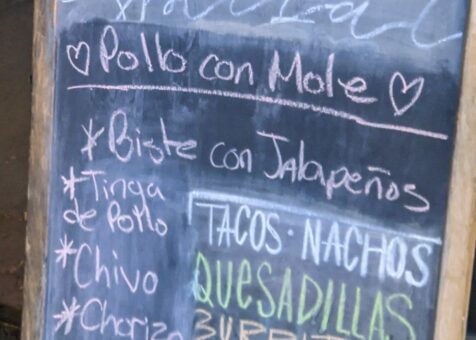 ♡ Pollo con Mole ♡
*Biste con Jalapeños
*Tinga
de Pollo
*Chivo
*Chorizo
TACOS · NACHOS
QUESADILLAS